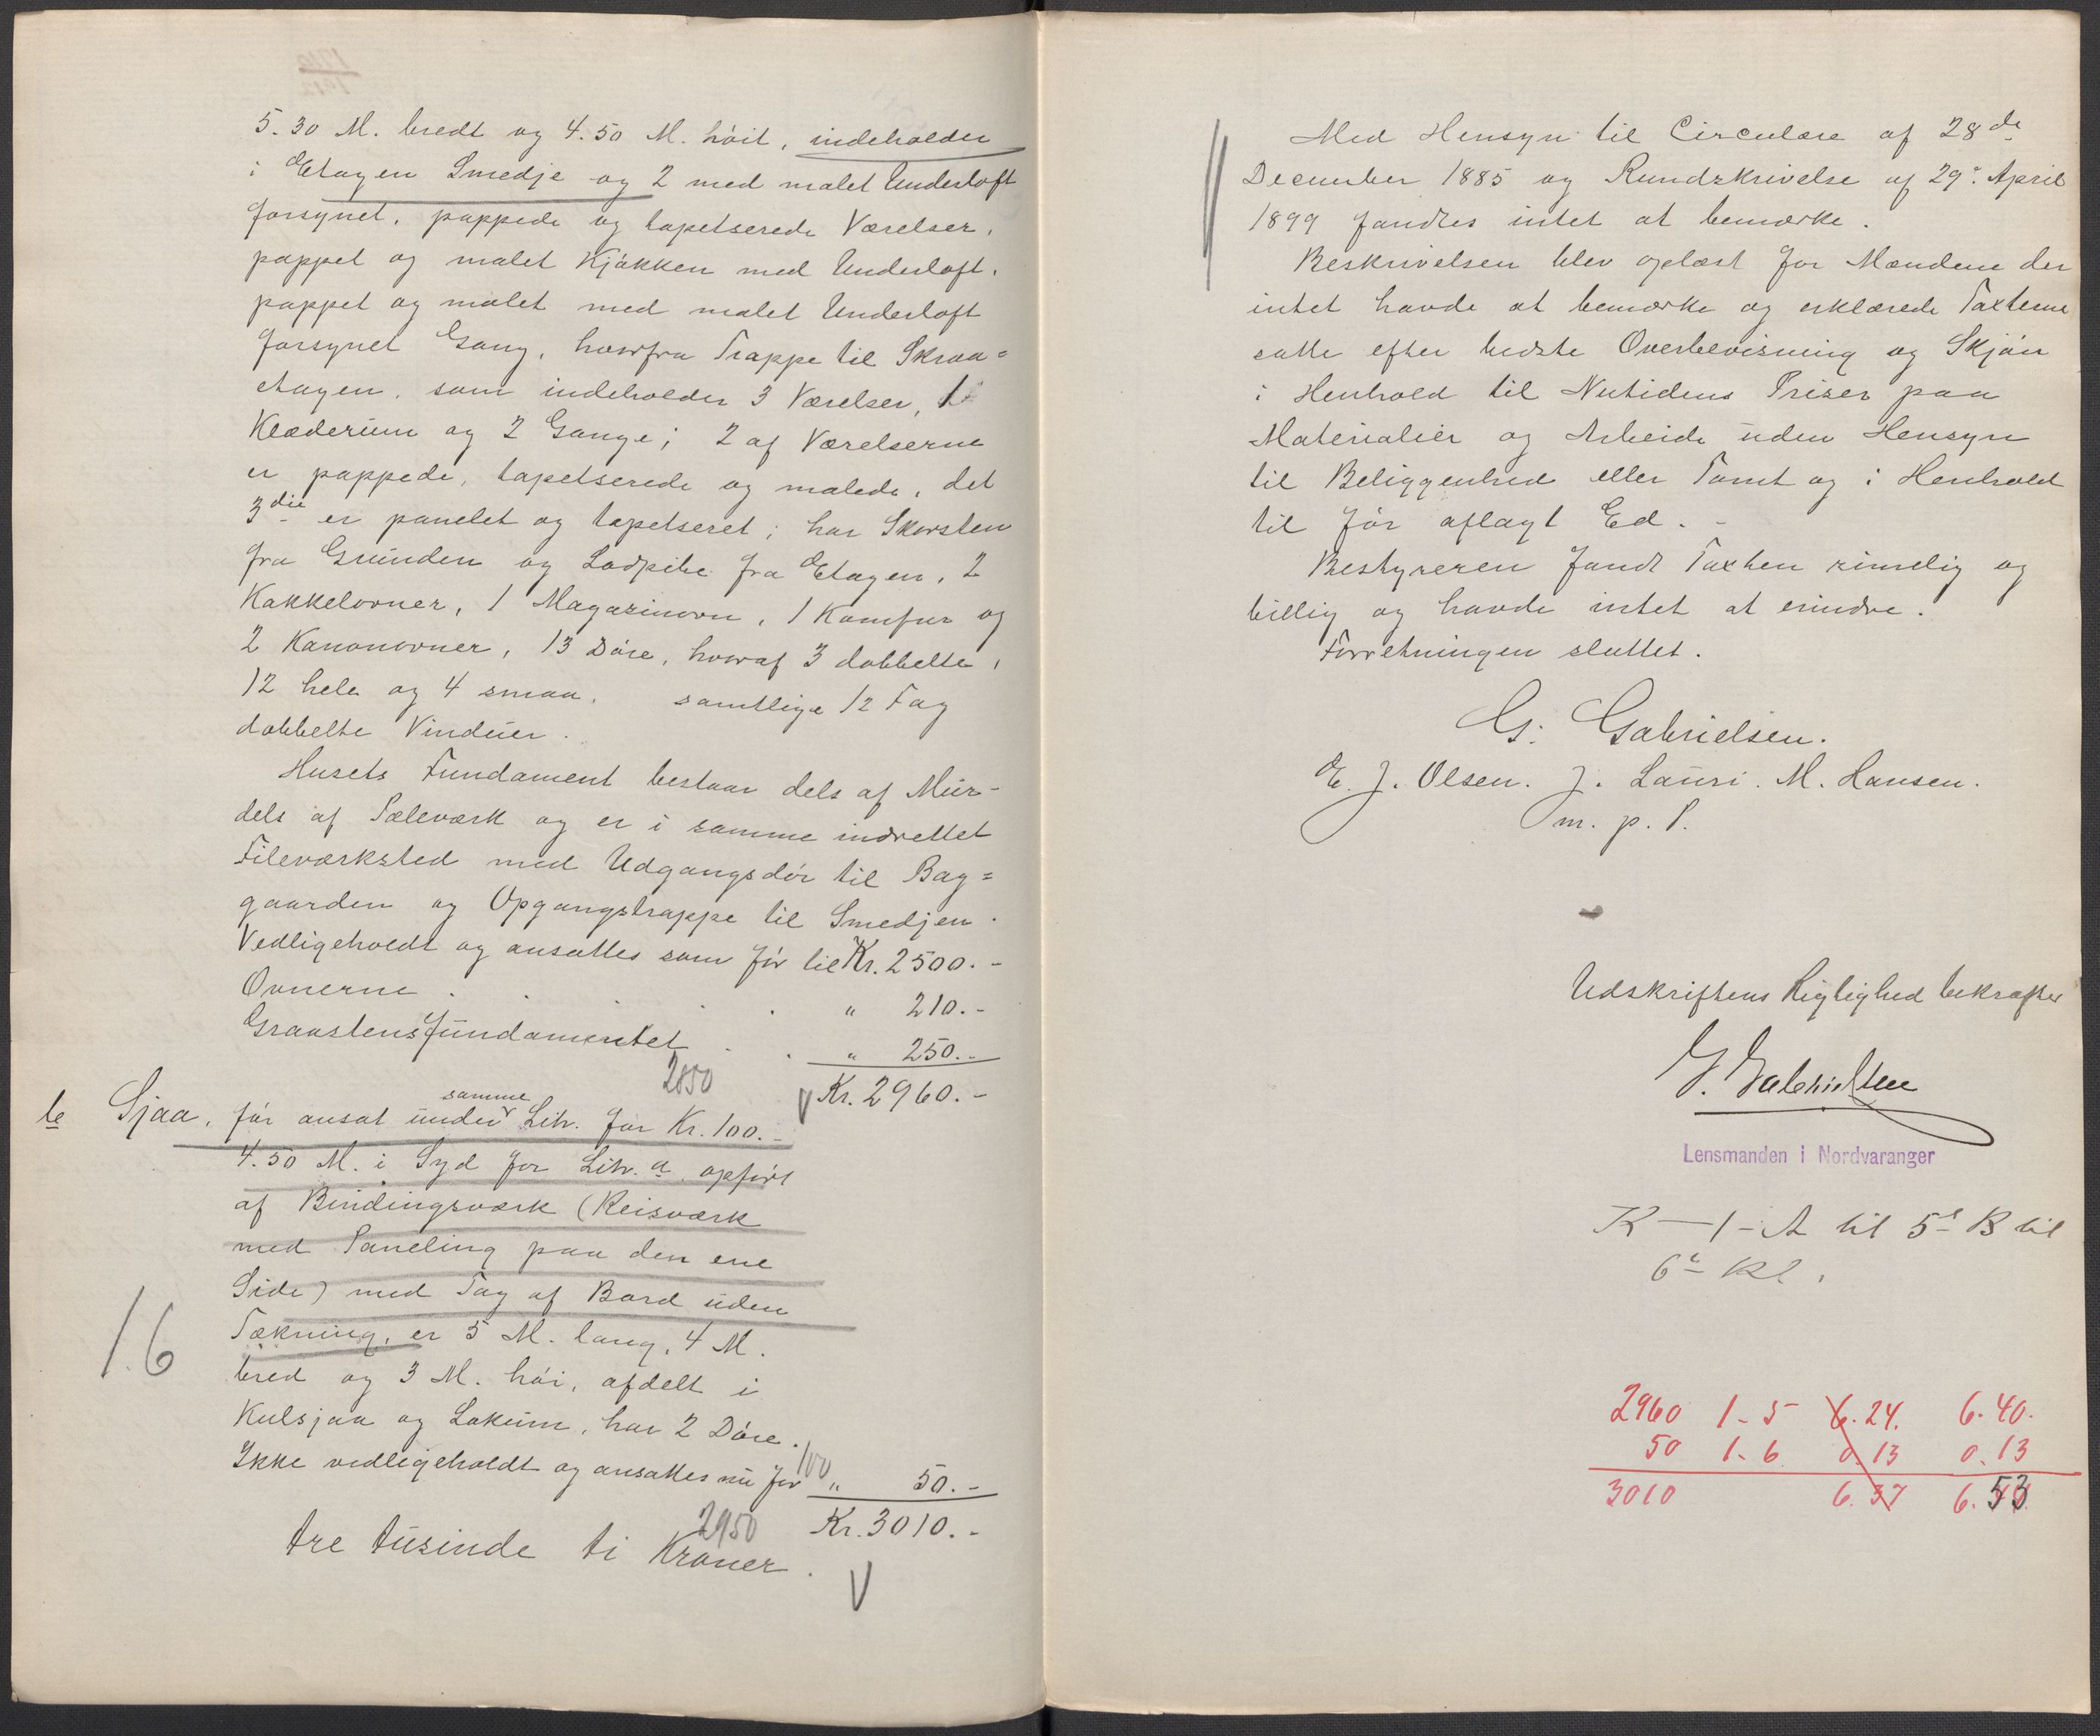 5.30 M. bredt og 4.50 M. høit, indeholder
i Etagen Smedje og 2 med malet Underloft
forsynet, pappede og tapetserede Værelser,
pappet og malet Kjøkken med Underloft,
pappet og malet med malet Underloft
forsynet Gang, hvorfra Trappe til Skraa=
etagen, som indeholder 3 Værelser, 1
Klæderum og 2 Gange; 2 af Værelserne
er pappede, tapetserede og malede, det
3die er panelet og tapetseret; har Skorsten
fra Grunden og Lodpibe fra Etagen, 2
Kakkelovner, 1 Magazinovn, 1 Komfur og
2 Kanonovner, 13 Døre, hvoraf 3 dobbelte,
12 hele og 4 smaa, samtlige 12 Fag
dobbelte Vinduer.
Husets Fundament bestaar dels af Mur-
dels af Pæleværk og er i samme indrettet
Fileværksted med Udgangsdør til Bag=
gaarden og Opgangstrappe til Smedjen.
Vedligeholdt og ansattes som før til Kr. 2500.-
Ovnerne . . . . " 210.-
Graastensfundamentet . . " 250.-
2850 V Kr. 2960.-
b Sjaa, før ansat under samme Litr. for Kr. 100.-
4.50 M. i Syd for Litr. a opført
af Bindingsværk (Reisværk
med Paneling paa den ene
Side) med Tag af Bord uden
Tækning, er 5 M. lang, 4 M.
1.6
bred og 3 M. høi, afdelt i
Kulsjaa og Lokum, har 2 Døre.
Ikke vedligeholdt og ansattes nu for 100 " 50.-
2950 Kr. 3010.-
tre tusinde ti Kroner.
V
Med Hensyn til Circulære af 28de
December 1885 og Rundskrivelse af 29. April
1899 fandtes intet at bemærke.
Beskrivelsen blev oplæst for Mændene der
intet havde at bemærke og erklærede Taxterne
satte efter bedste Overbevisning og Skjøn
i Henhold til Nutidens Priser paa
Materialier og Arbeide uden Hensyn
til Beliggenhed eller Tomt og i Henhold
til før aflagt Ed. -
Bestyreren fandt Taxten rimelig og
billig og havde intet at erindre.
Forretningen sluttet.
G. Gabrielsen.
E. J. Olsen. J. Lauri. M. Hansen.
m. p. P.
Udskriftens Rigtighed bekræfter
G. Gabrielsen
Lensmanden i Nordvaranger
K - 1 - A til 5 B til
6 Kl.
2960 1-5 6.24. 6.40.
50 1-6 0.13 0.13
3010 6.37 6.53